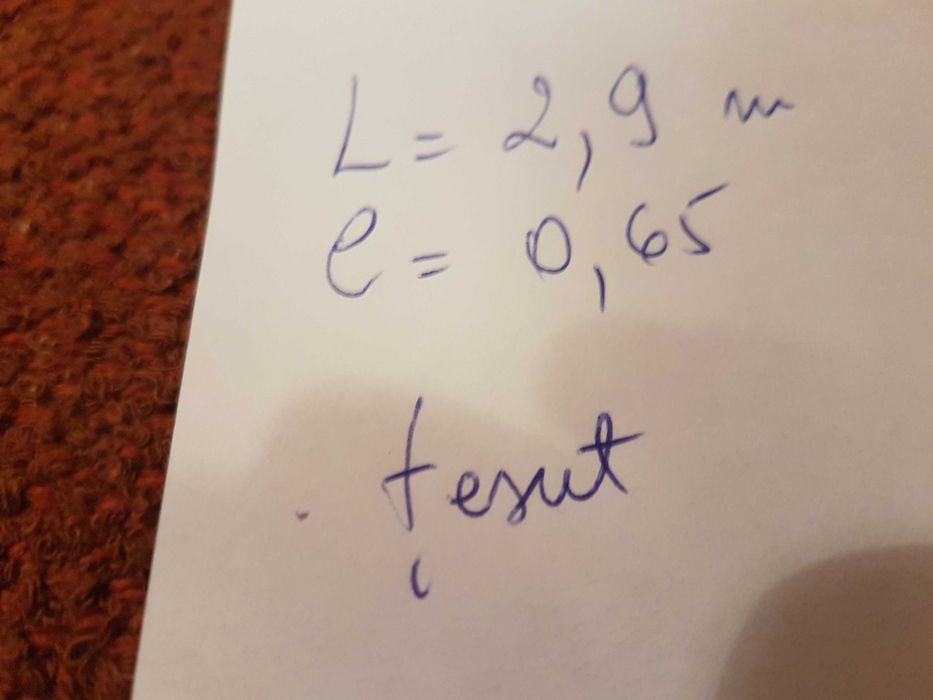 L = 2,9 m
l = 0,65
țesut